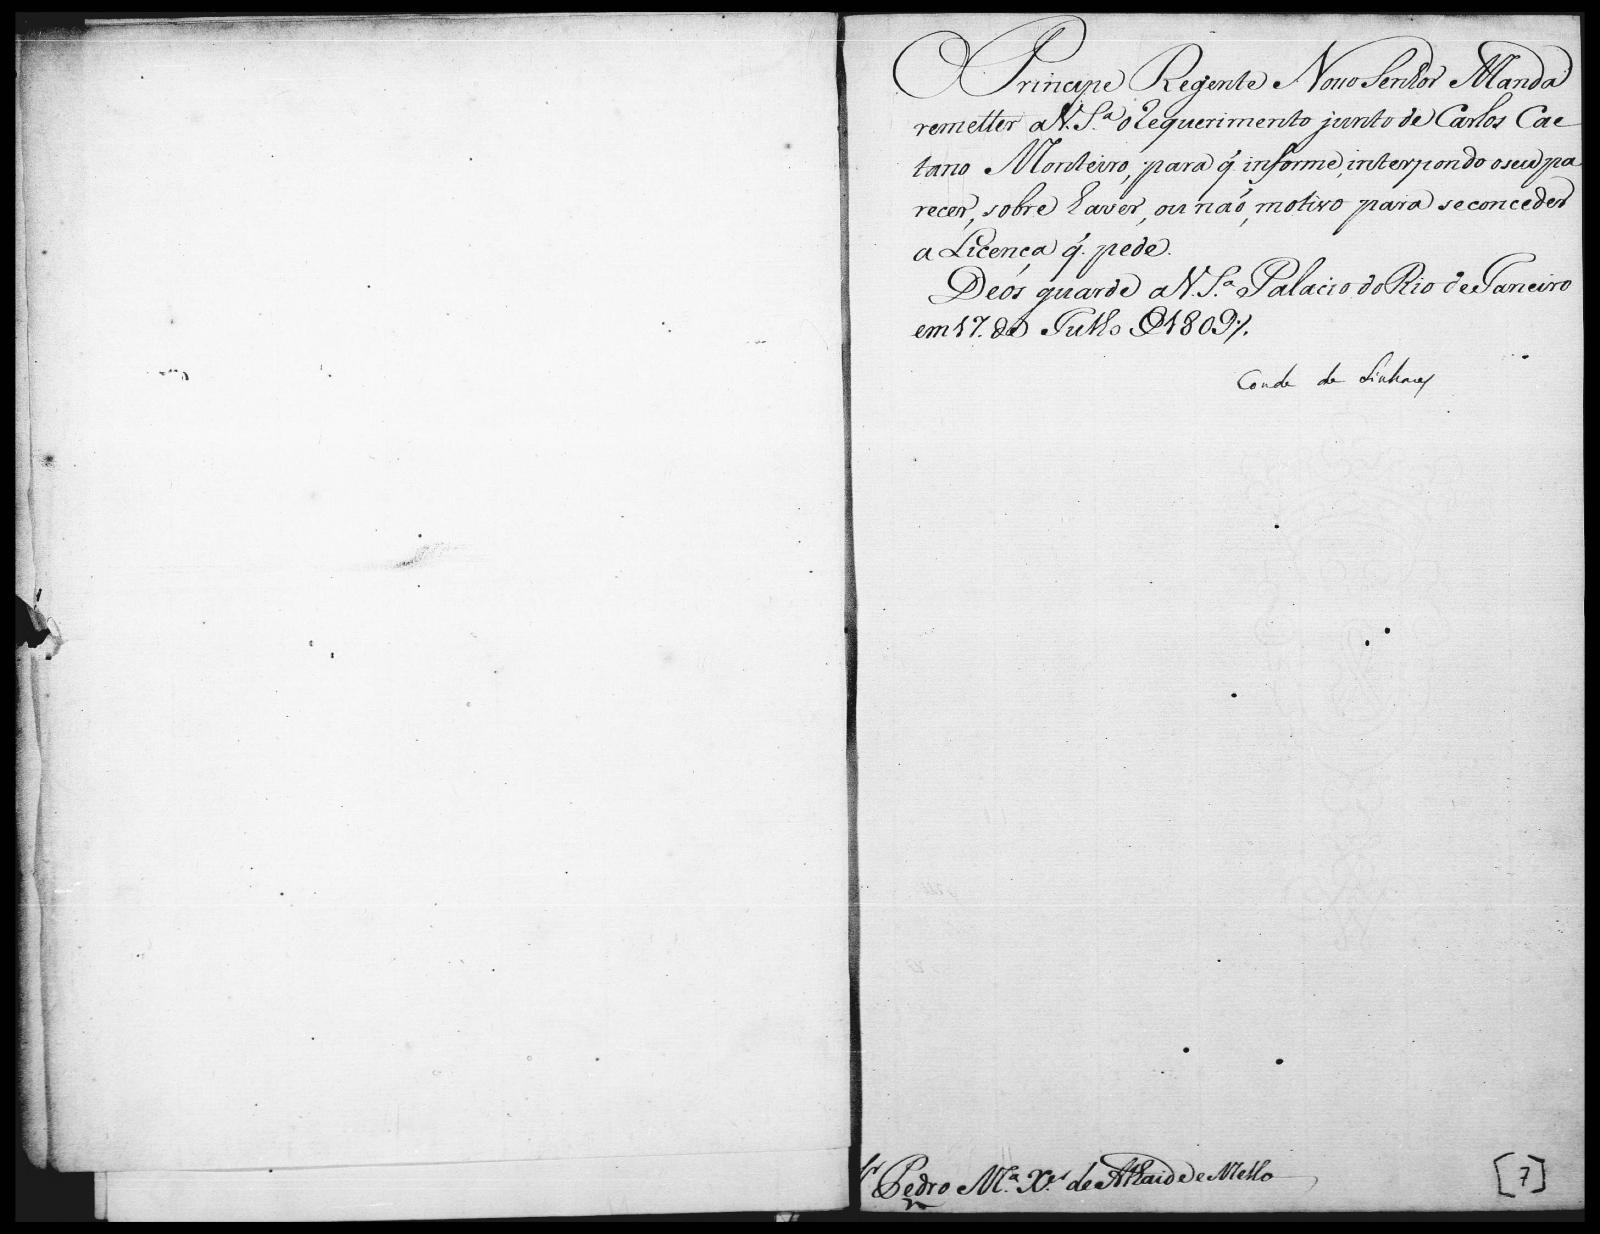 O Principe Regente Nosso Senhor Manda
remetter a V. S.ª o Requerimento junto de Carlos Cae
tano Monteiro, para q. informe, interpondo o seu pa
recer, sobre haver, ou não, motivo para se conceder
a Licença q. pede.
Deos guarde a V. S.ª Palacio do Rio de Janeiro
em 17. de Julho de 1809.
Conde de Linhares
Sr Pedro M.ª X.er de Athaide e Mello
[7]